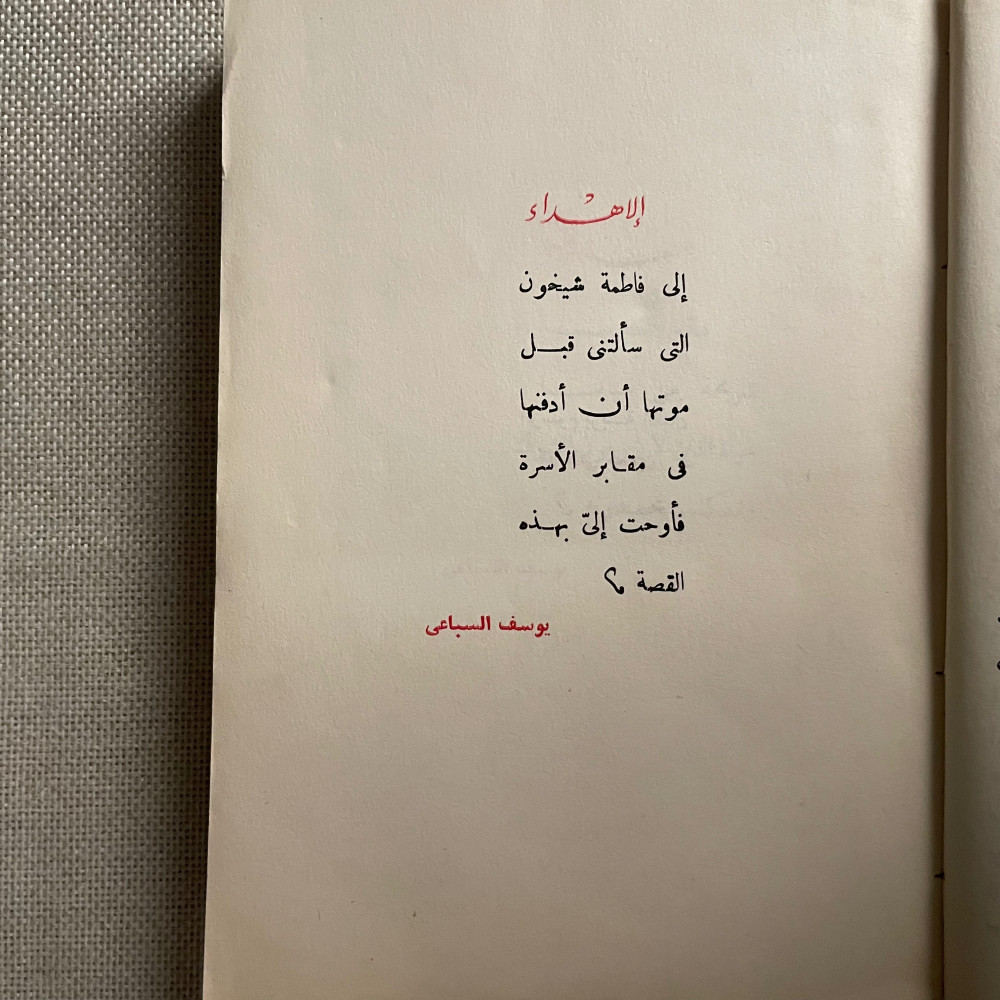 الإهداء
إلى فاطمة شيخون
التى سألتنى قبـــل
موتها أن أدفنها
فى مقـابر الأسرة
فأوحت إلىّ بهـــذه
القصة
يوسف السباعى